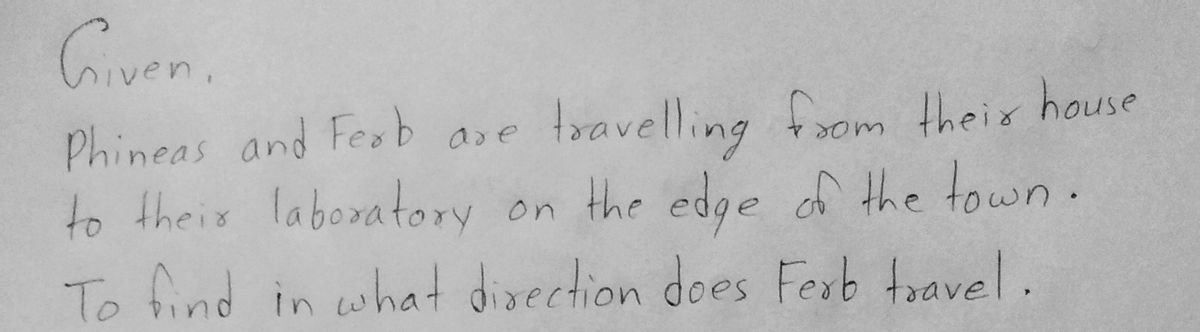 Given,
Phineas and Ferb are travelling from their house
to their laboratory on the edge of the town.
To find in what direction does Ferb travel.